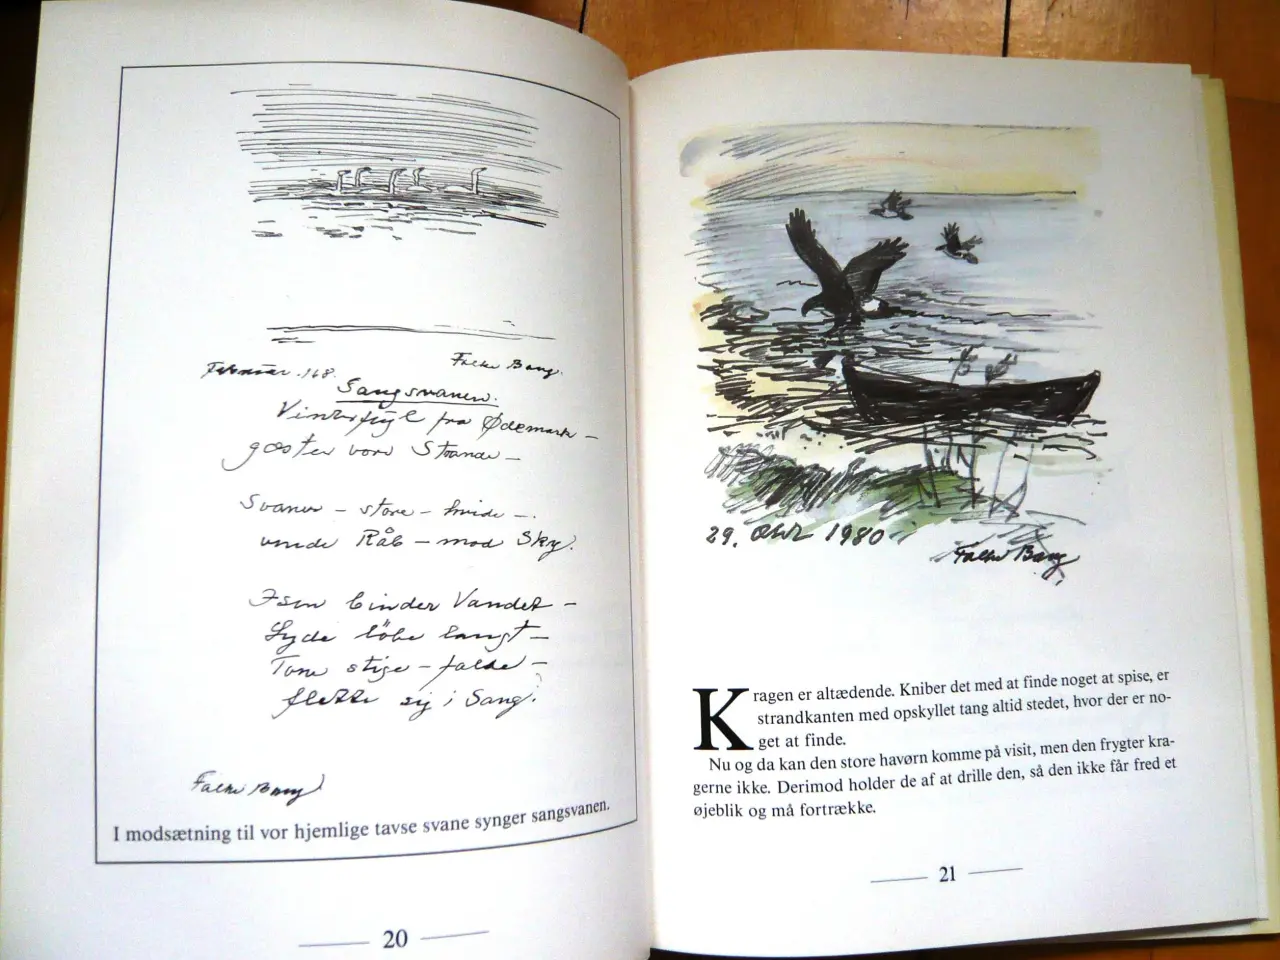 Februar . 168.
Falke Bang.
Sangsvanen.
Vinterfugl fra Ødemark –
gæster vore Strande –
Svaner – store – hvide –
sende Råb – mod Sky.
Isen binder Vandet –
Lyde løbe langt –
Tone stige – falde –
flette sig i Sang.
Falke Bang
I modsætning til vor hjemlige tavse svane synger sangsvanen.
20
29. 1980
Falke Bang
Kragen er altædende. Kniber det med at finde noget at spise, er
strandkanten med opskyllet tang altid stedet, hvor der er no-
get at finde.
Nu og da kan den store havørn komme på visit, men den frygter kra-
gerne ikke. Derimod holder de af at drille den, så den ikke får fred et
øjeblik og må fortrække.
21